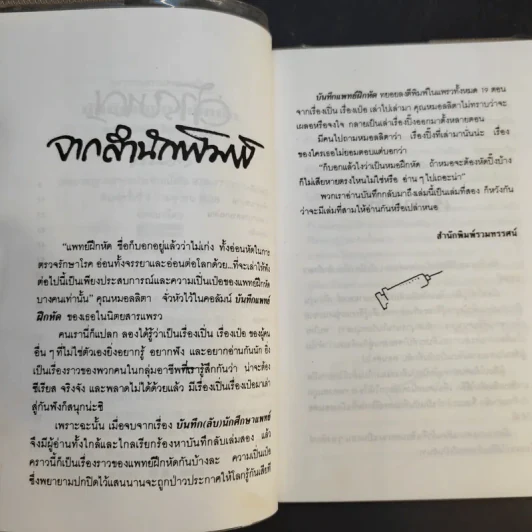 จากสำนักพิมพ์
"แพทย์ฝึกหัด ชื่อก็บอกอยู่แล้วว่าไม่เก่ง ทั้งอ่อนหัดในการ
ตรวจรักษาโรค อ่อนทั้งจรรยาและอ่อนต่อโลกด้วย...ที่จะเล่าให้ฟัง
ต่อไปนี้เป็นเพียงประสบการณ์และความเป็นเปิ่นของแพทย์ฝึกหัด
บางคนเท่านั้น" คุณหมอลลิตา จั่วหัวไว้ในคอลัมน์ บันทึกแพทย์
ฝึกหัด ของเธอในนิตยสารแพรว
คนเรานี่ก็แปลก ลองได้รู้ว่าเป็นเรื่องเปิ่น เรื่องเปิ่น ของผู้คน
อื่น ๆ ที่ไม่ใช่ตัวเองยิ่งอยากรู้ อยากฟัง และอยากอ่านกันนัก ยิ่ง
เป็นเรื่องราวของพวกคนในกลุ่มอาชีพที่เรารู้สึกกันว่า น่าจะต้อง
ซีเรียส จริงจัง และพลาดไม่ได้ด้วยแล้ว มีเรื่องเปิ่นเรื่องเป๋อมาเล่า
สู่กันฟังก็สนุกน่ะซิ
เพราะฉะนั้น เมื่อจบจากเรื่อง บันทึก(ลับ)นักศึกษาแพทย์
จึงมีผู้อ่านทั้งใกล้และไกลเรียกร้องหาบันทึกลับเล่มสอง แล้ว
คราวนี้ก็เป็นเรื่องราวของแพทย์ฝึกหัดกันบ้างละ ความเป็นเปิ่น
ซึ่งพยายามปกปิดไว้แสนนานจะถูกป่าวประกาศให้โลกรู้กันเสียที
บันทึกแพทย์ฝึกหัด ทยอยลงตีพิมพ์ในแพรวทั้งหมด 19 ตอน
จากเรื่องเปิ่น เรื่องเป๋อ เล่าไปเล่ามา คุณหมอลลิตาไม่ทราบว่าจะ
เผลอหรือจงใจ กลายเป็นเล่าเรื่องปิ๊งออกมาตั้งหลายตอน
มีคนไปถามหมอลลิตาว่า เรื่องปิ๊งที่เล่ามานั่นน่ะ เรื่อง
ของใครเธอไม่ยอมตอบแต่บอกว่า
"ก็บอกแล้วไงว่าเป็นหมอฝึกหัด ถ้าหมอจะต้องหัดปิ๊งบ้าง
ก็ไม่เสียหายตรงไหนไม่ใช่หรือ อ่าน ๆ ไปเถอะน่า"
พวกเราอ่านบันทึกลับมาถึงเล่มนี้เป็นเล่มที่สอง ก็หวังกัน
ว่าจะมีเล่มที่สามให้อ่านกันหรือเปล่าหนอ
สำนักพิมพ์รวมทรรศน์